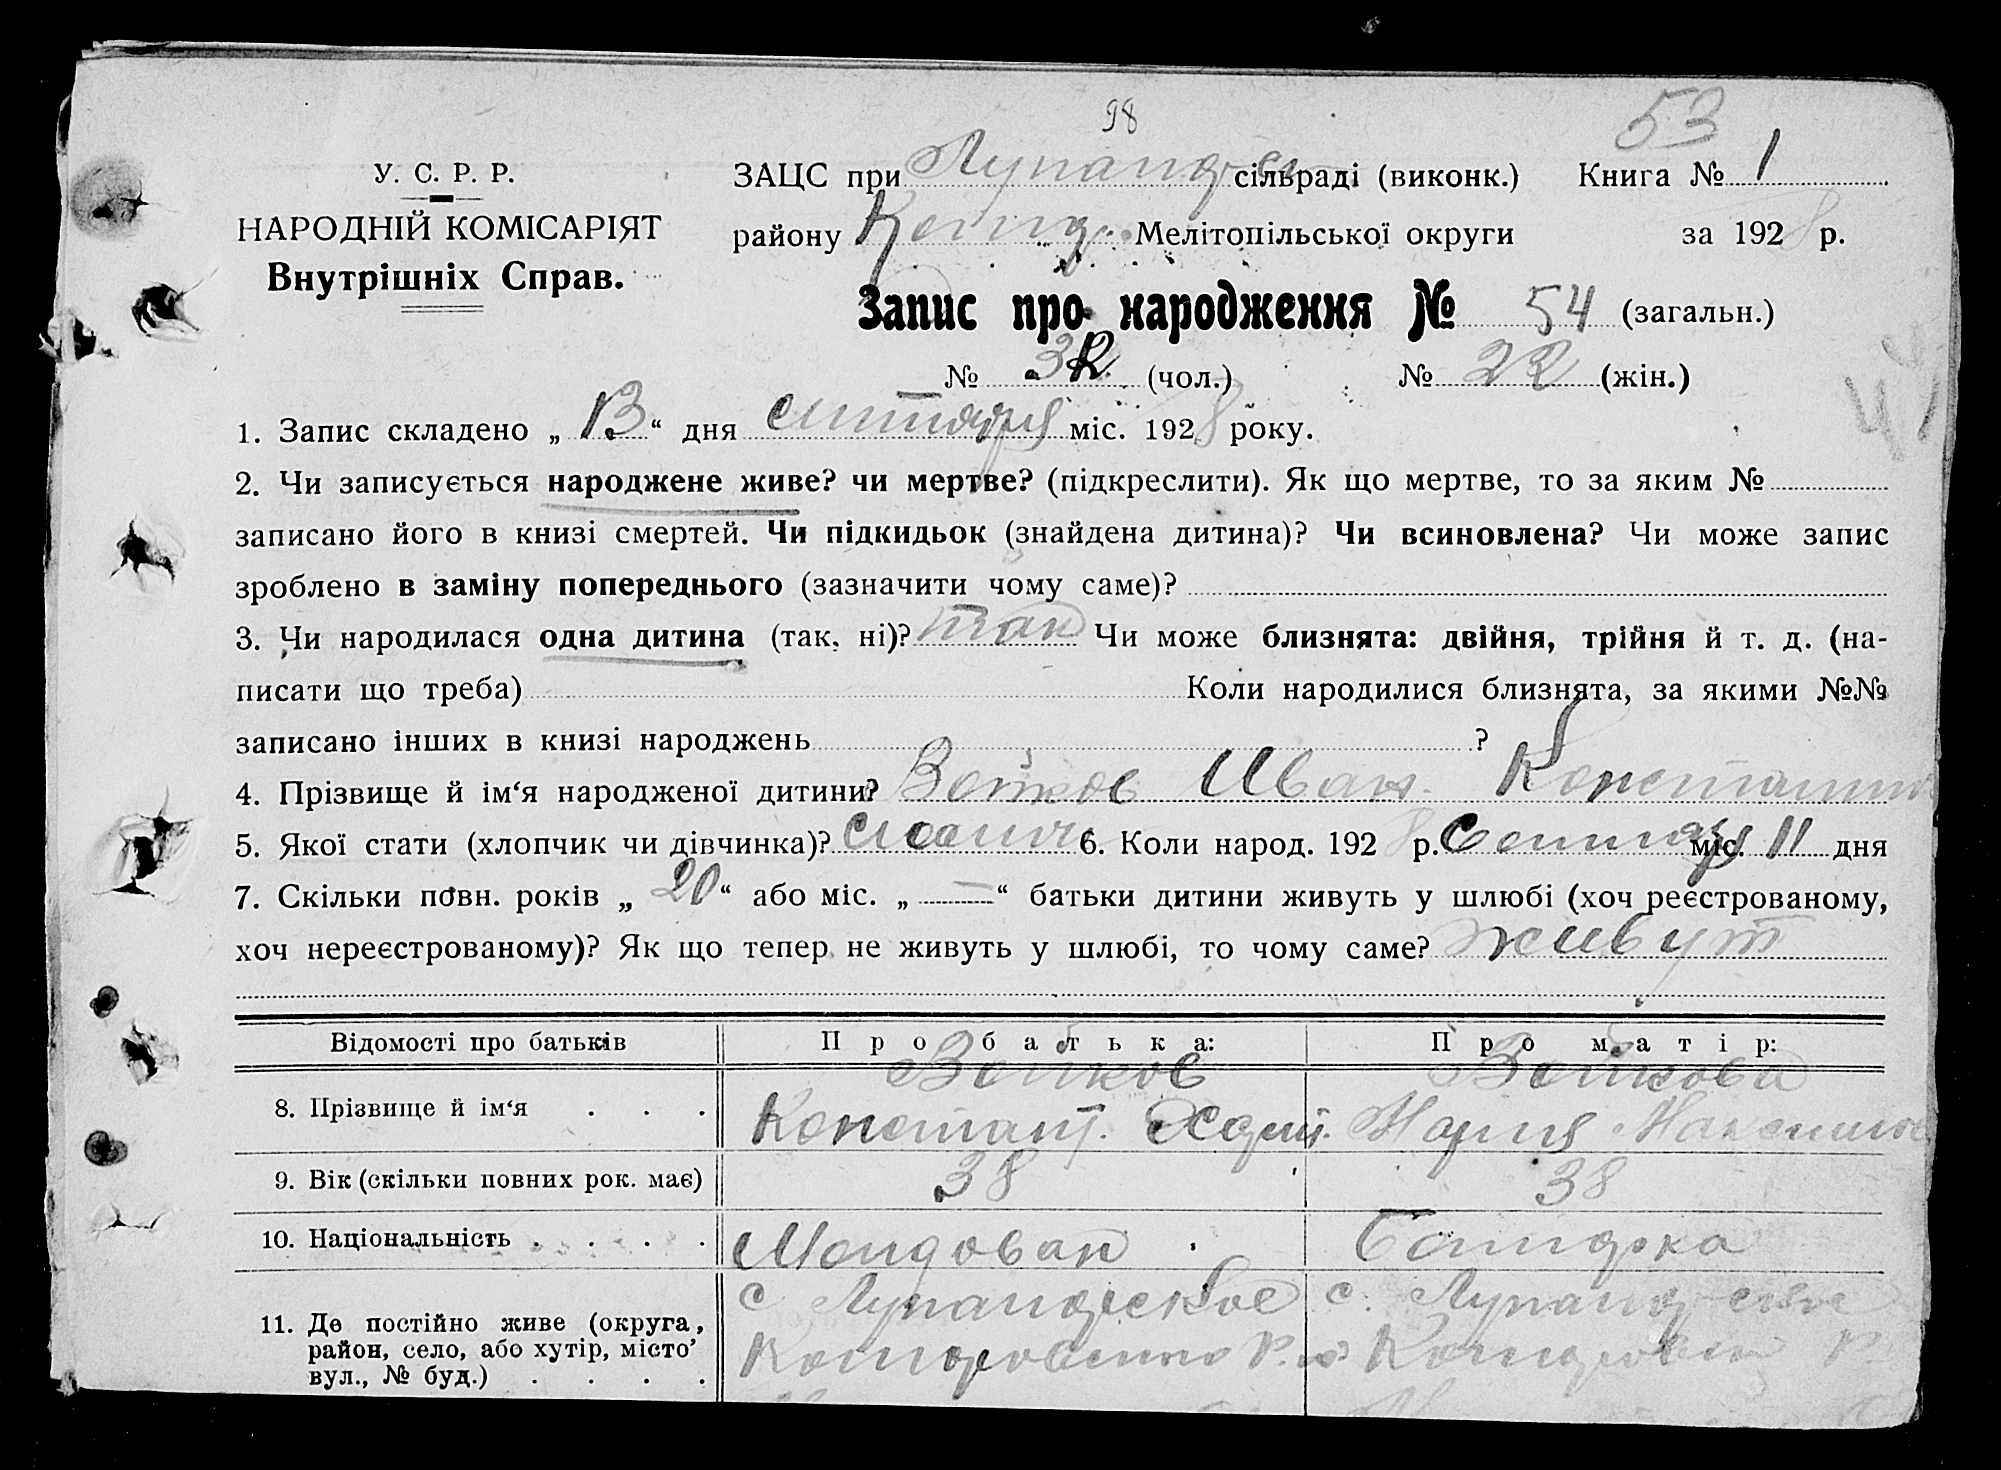 98
53
У. С. Р. Р.
НАРОДНІЙ КОМІСАРІЯТ
Внутрішніх Справ.
ЗАЦС при сільраді (виконк.) Книга № 1
району Мелітопільської округи за 1928 р.
Запис про народження № 54 (загальн.)
№ 32 (чол.) № 22 (жін.)
1. Запис складено „ 13 “ дня сентября міс. 1928 року.
2. Чи записується народжене живе? чи мертве? (підкреслити). Як що мертве, то за яким №
записано його в книзі смертей. Чи підкидьок (знайдена дитина)? Чи всиновлена? Чи може запис
зроблено в заміну попереднього (зазначити чому саме)?
3. Чи народилася одна дитина (так, ні)? так Чи може близнята: двійня, трійня й т. д. (на-
писати що треба) Коли народилися близнята, за якими №№
записано інших в книзі народжень ?
4. Прізвище й ім‘я народженої дитини? Войков Иван Константин
5. Якої стати (хлопчик чи дівчинка)? 6. Коли народ. 1928 р. Сентяря міс. 11 дня
7. Скільки повн. років „ 20 “ або міс. „ — “ батьки дитини живуть у шлюбі (хоч реєстрованому,
хоч нереєстрованому)? Як що тепер не живуть у шлюбі, то чому саме? живут
Відомості про батьків Про батька: Про матір:
8. Прізвище й ім‘я . . . Войков Войкова
Констант. Мария Максимов
9. Вік (скільки повних рок. має) 38 38
10. Національність . . . . Молдован Болгарка
11. Де постійно живе (округа,
район, село, або хутір, місто’
вул., № буд.) . . . .
с. с.